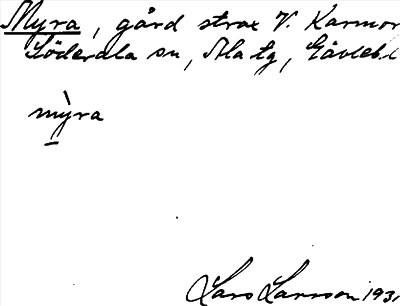 Myra, gård strax V. Karmor
Söderala sn, Ala tg, Gävleb.l
mỳra
Lars Larsson 193